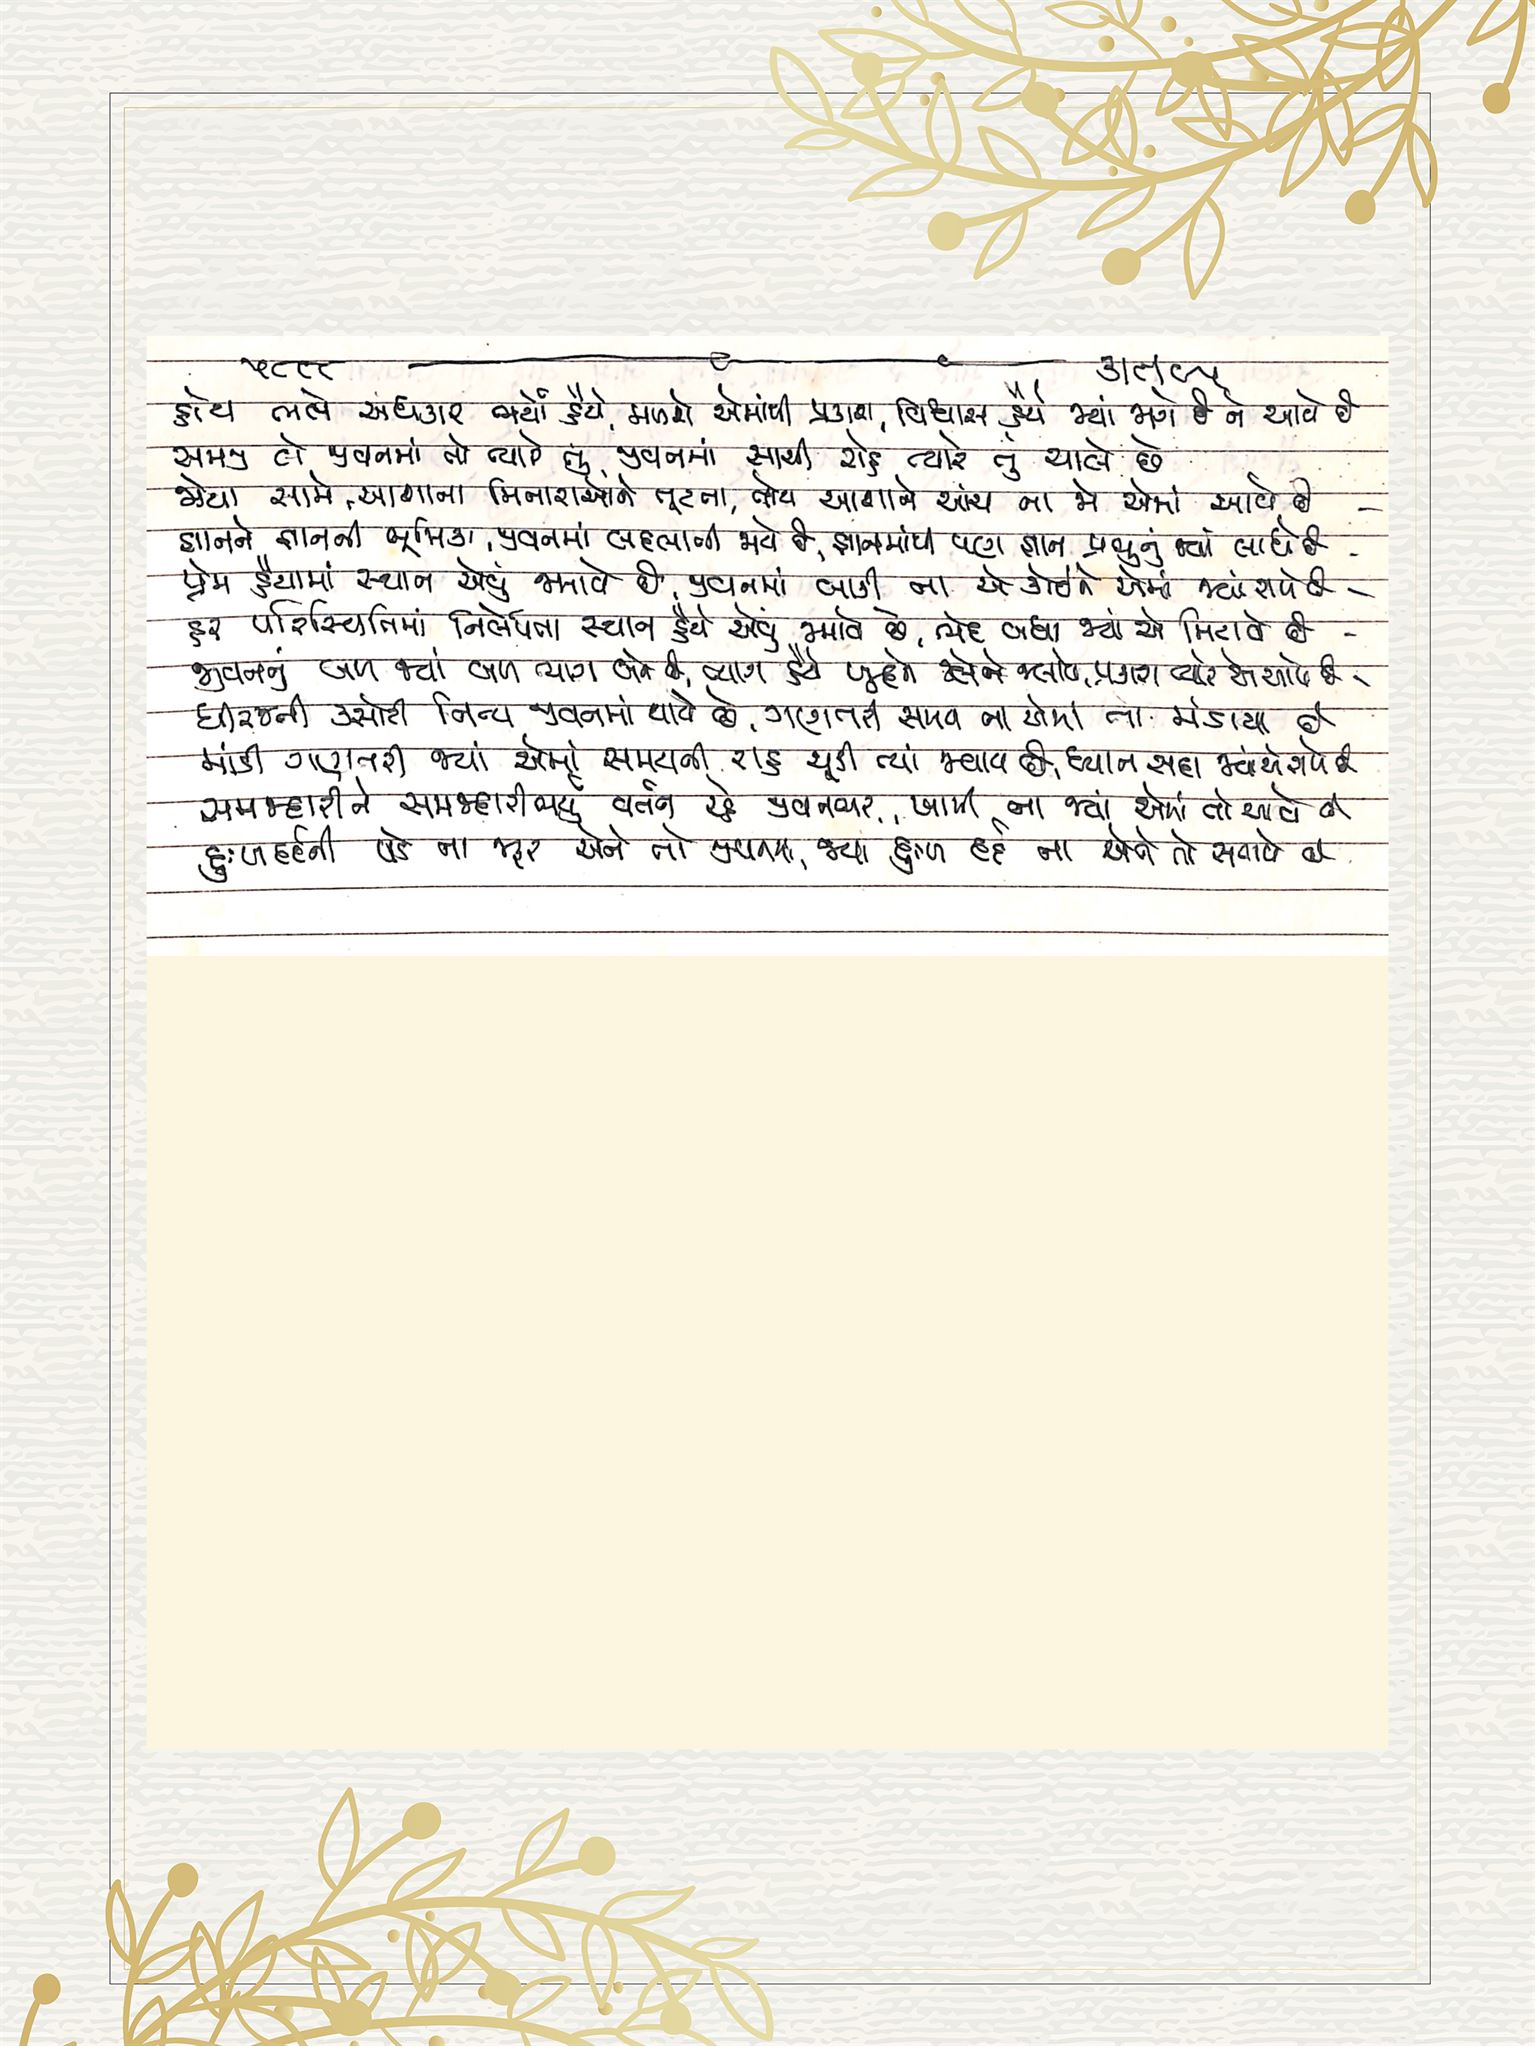 ૫૮૯૯
હોય ભલે અંધકાર ભર્યો હૈયે, મળશે એમાંથી પ્રકાશ, વિશ્વાસ હૈયે જ્યાં જાગે છે ને આવે છે
સમજી લે જીવનમાં તો ત્યારે તું, જીવનમાં સાચી રાહે ત્યારે તું ચાલે છે
જોયા સામે, આશાના મિનારાઓને તૂટતા, તોય આશાને આંચ ના જો એમાં આવે છે -
જ્ઞાનને જ્ઞાનની ભૂમિકા, જીવનમાં બદલાતી જાયે છે, જ્ઞાનમાંથી પણ જ્ઞાન પ્રભુનું જ્યાં લાધે છે -
પ્રેમ હૈયામાં સ્થાન એવું જમાવે છે, જીવનમાં બાકી ના એ કોઈને એમાં જ્યાં રાખે છે -
હર પરિસ્થિતિમાં નિર્લેપતા સ્થાન હૈયે એવું જમાવે છે, ભેદ બધા જ્યાં એ મિટાવે છે -
જીવનનું બળ જ્યાં બળ ત્યાગ બને છે, ત્યાગ હૈયે પ્રકાશ ત્યારે એ આપે છે -
ધીરજની કસોટી નિત્ય જીવનમાં થાયે છે, ગણતરી સમય ના એમાં ના મંડાયા છે
માંડી ગણતરી જ્યાં એમાં સમયની, રાહ ચૂકી ત્યાં જવાય છે, ધ્યાન સદા જ્યાં એ રાખે છે
સમજદારીને સમજદારીભર્યું વર્તન રહે જીવનભર, ખામી ના જ્યાં એમાં તો આવે છે
દુઃખદર્દની પડે ના જરૂર એને તો જીવનમાં, જ્યાં દુઃખ દર્દ ના એને તો સતાવે છે